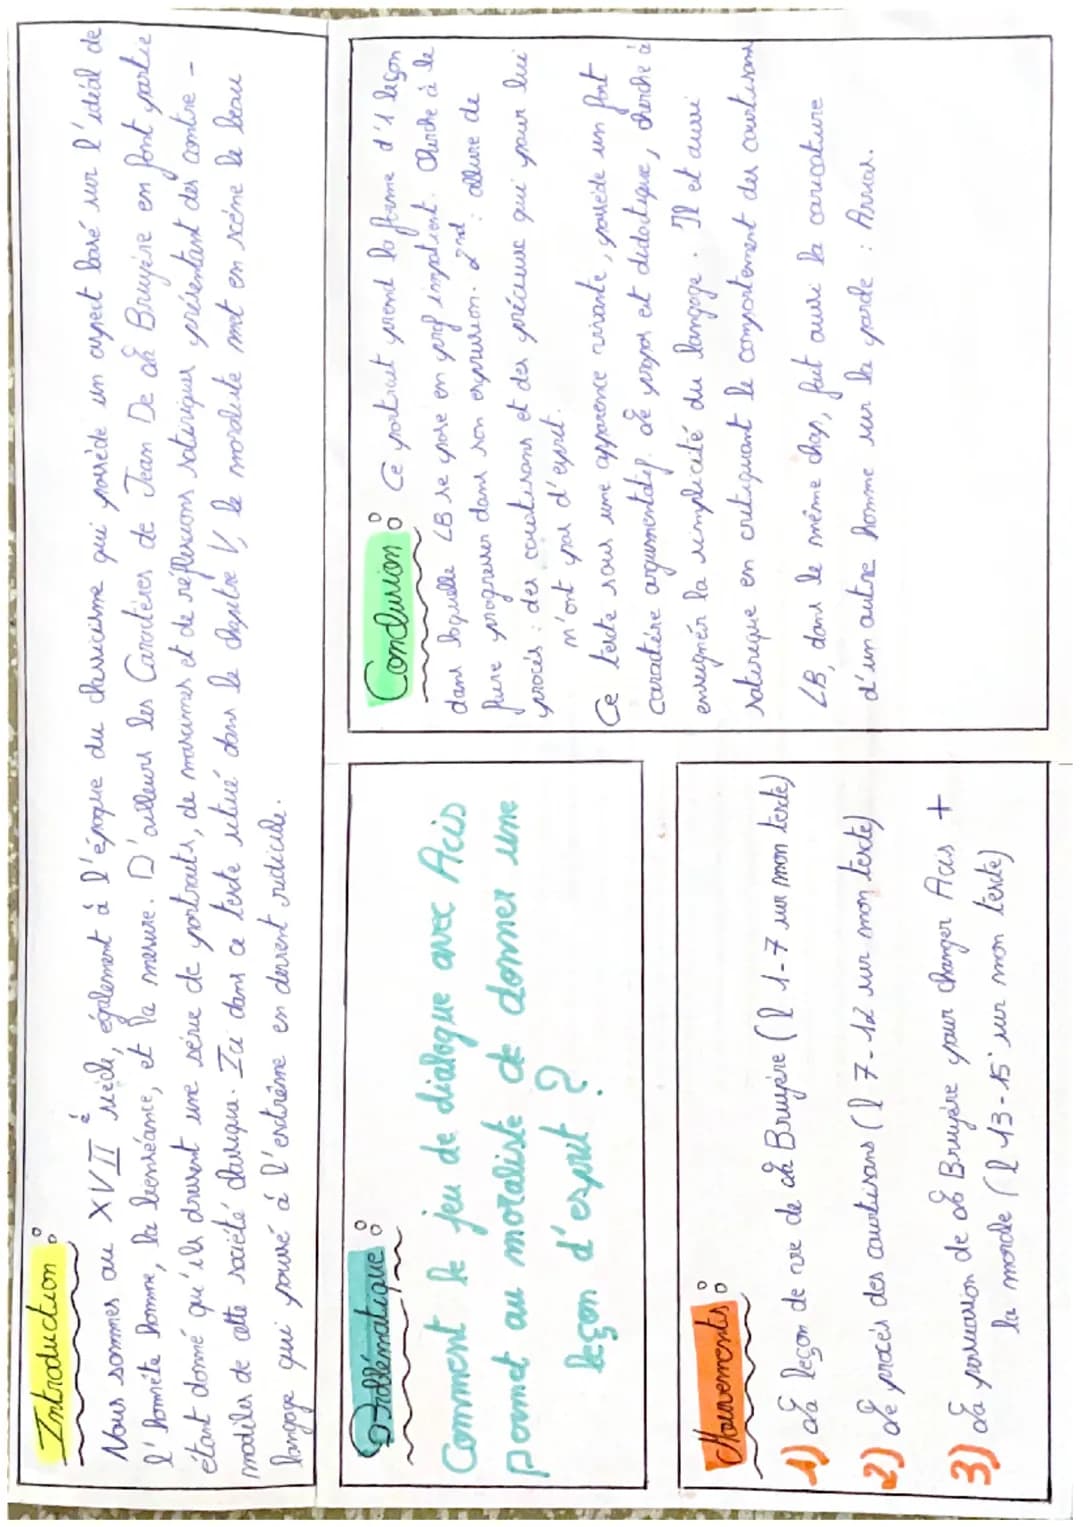 Introduction :
Nous sommes au XVII è siècle, également à l'époque du classicisme qui possède un aspect basé sur l'idéal de
l'honnête homme, la bienséance, et la mesure. D'ailleurs les Caractères de Jean De La Bruyère en font partie
étant donné qu'ils dressent une série de portraits, de maximes et de réflexions satiriques présentant des contre-
modèles de cette société classique. Ici dans ce texte situé dans le chapitre V, le moraliste met en scène le beau
langage qui poussé à l'extrême en devient ridicule.
Problématique :
Comment le jeu de dialogue avec Acis
permet au moraliste de donner une
leçon d'esprit ?
Mouvements :
1) La leçon de vie de La Bruyère (l 1-7 sur mon texte)
2) Le procès des courtisans (l 7-12 sur mon texte)
3) La permission de La Bruyère pour changer Acis +
la morale (l 13-15 sur mon texte)
Conclusion :
Ce portrait prend la forme d'1 leçon
dans laquelle LB se pose en prof impatient. Cherche à le
faire progresser dans son expression. 2nd : allure de
procès : des courtisans et des précieux qui pour lui
n'ont pas d'esprit.
Ce texte sous une apparence vivante, possède un fort
caractère argumentatif. Le propos est didactique, cherche à
enseigner la simplicité du langage. Il et aussi
satirique en critiquant le comportement des courtisans
LB, dans le même chap, fait aussi la caricature
d'un autre homme sur la parole : Arrias.